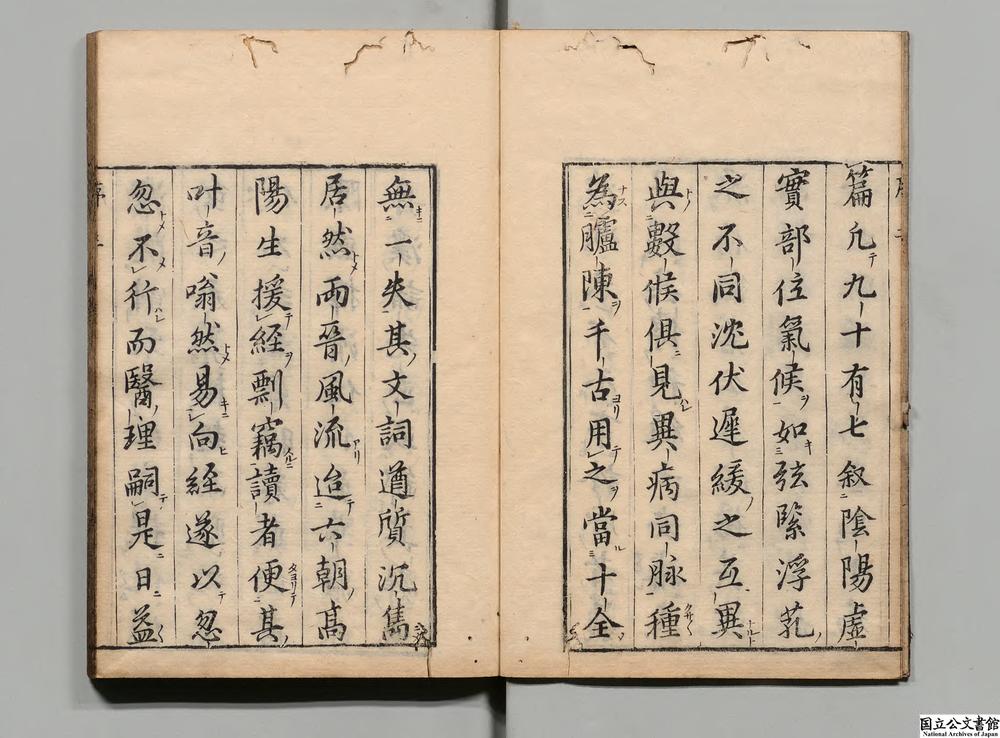 篇凢九十有七叙陰陽虛
實部位氣候如弦緊浮芤
之不同沈伏遲緩之互異
與數候俱見異病同脉種
為臚陳千古用之當十全
無一失其文詞遒質沉雋
居然両晉風流迨六朝髙
陽生援経剽竊讀者便其
叶音翕然易向経遂以忽
忽不行而醫理嗣是日益
国立公文書館
National Archives of Japan